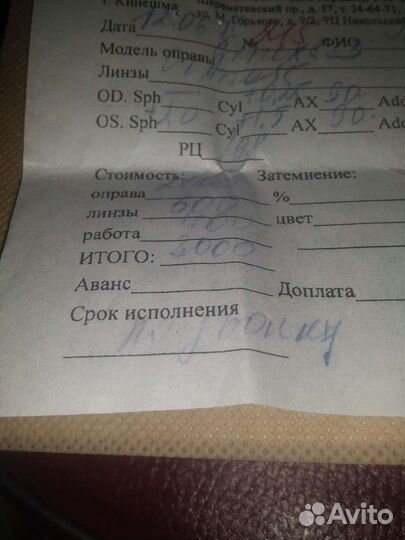 г. Кинешма, Шереметевский пр., д. 57, т. 34-64-71,
ул. М. Горького, д. 9/2, ТЦ Никольский
Дата 12.05 № 213 ФИО
Модель оправы
Линзы
OD. Sph Cyl AX 90 Add
OS. Sph +2,0 Cyl +1,5 AX 90 Add
РЦ
Стоимость: Затемнение:
оправа 2000 %
линзы 600 цвет
работа 400
ИТОГО: 3000
Аванс Доплата
Срок исполнения
по звонку
Avito